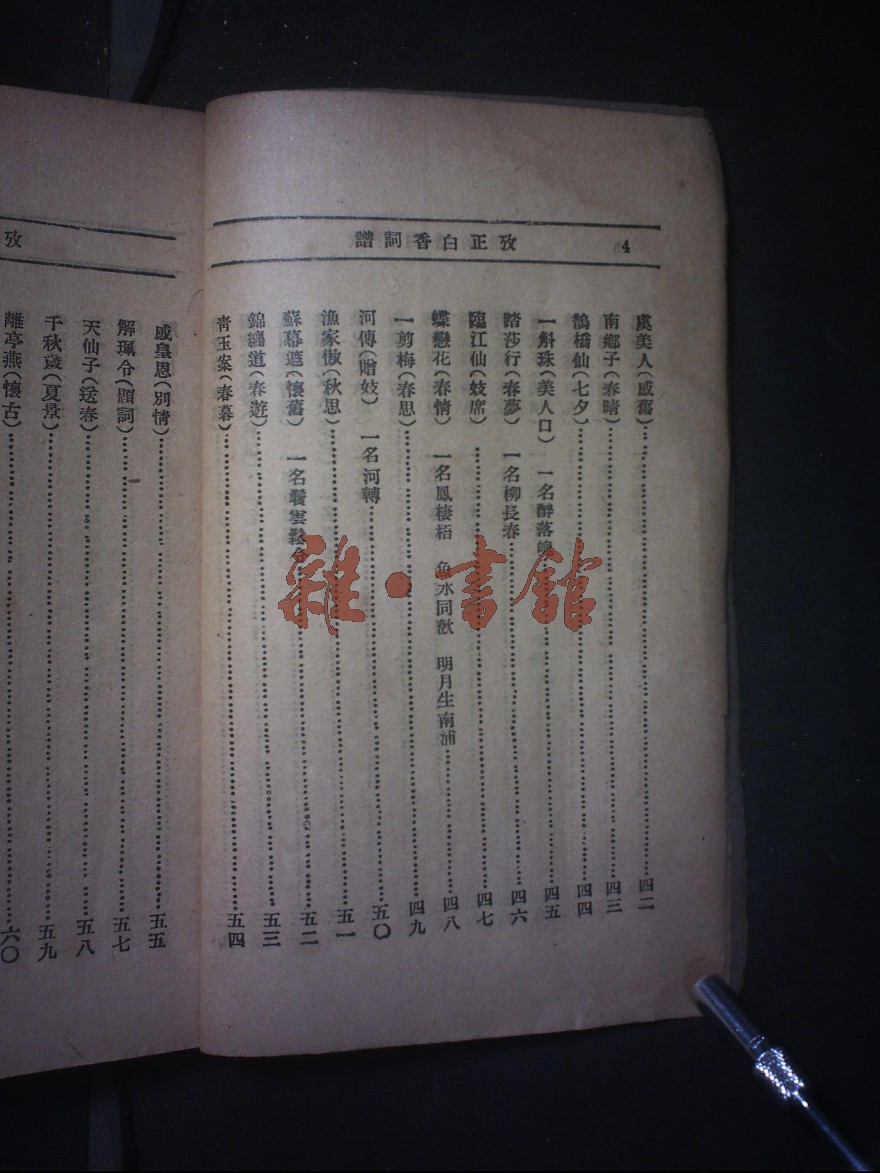 攷正白香詞譜
4
虞美人(感舊)……四二
南鄉子(春晴)……四三
鵲橋仙(七夕)……四四
一斛珠(美人口) 一名醉落魄……四五
踏莎行(春夢) 一名柳長春……四六
臨江仙(妓席)……四七
蝶戀花(春情) 一名鳳棲梧 魚水同歡 明月生南浦……四八
一剪梅(春思)……四九
河傳(贈妓) 一名河轉……五〇
漁家傲(秋思)……五一
蘇幕遮(懷舊) 一名鬢雲鬆令……五二
錦纏道(春遊)……五三
靑玉案(春暮)……五四
攷
感皇恩(別情)……五五
解珮令(題詞)……五七
天仙子(送春)……五八
千秋歲(夏景)……五九
離亭燕(懷古)……六〇
雜·書館